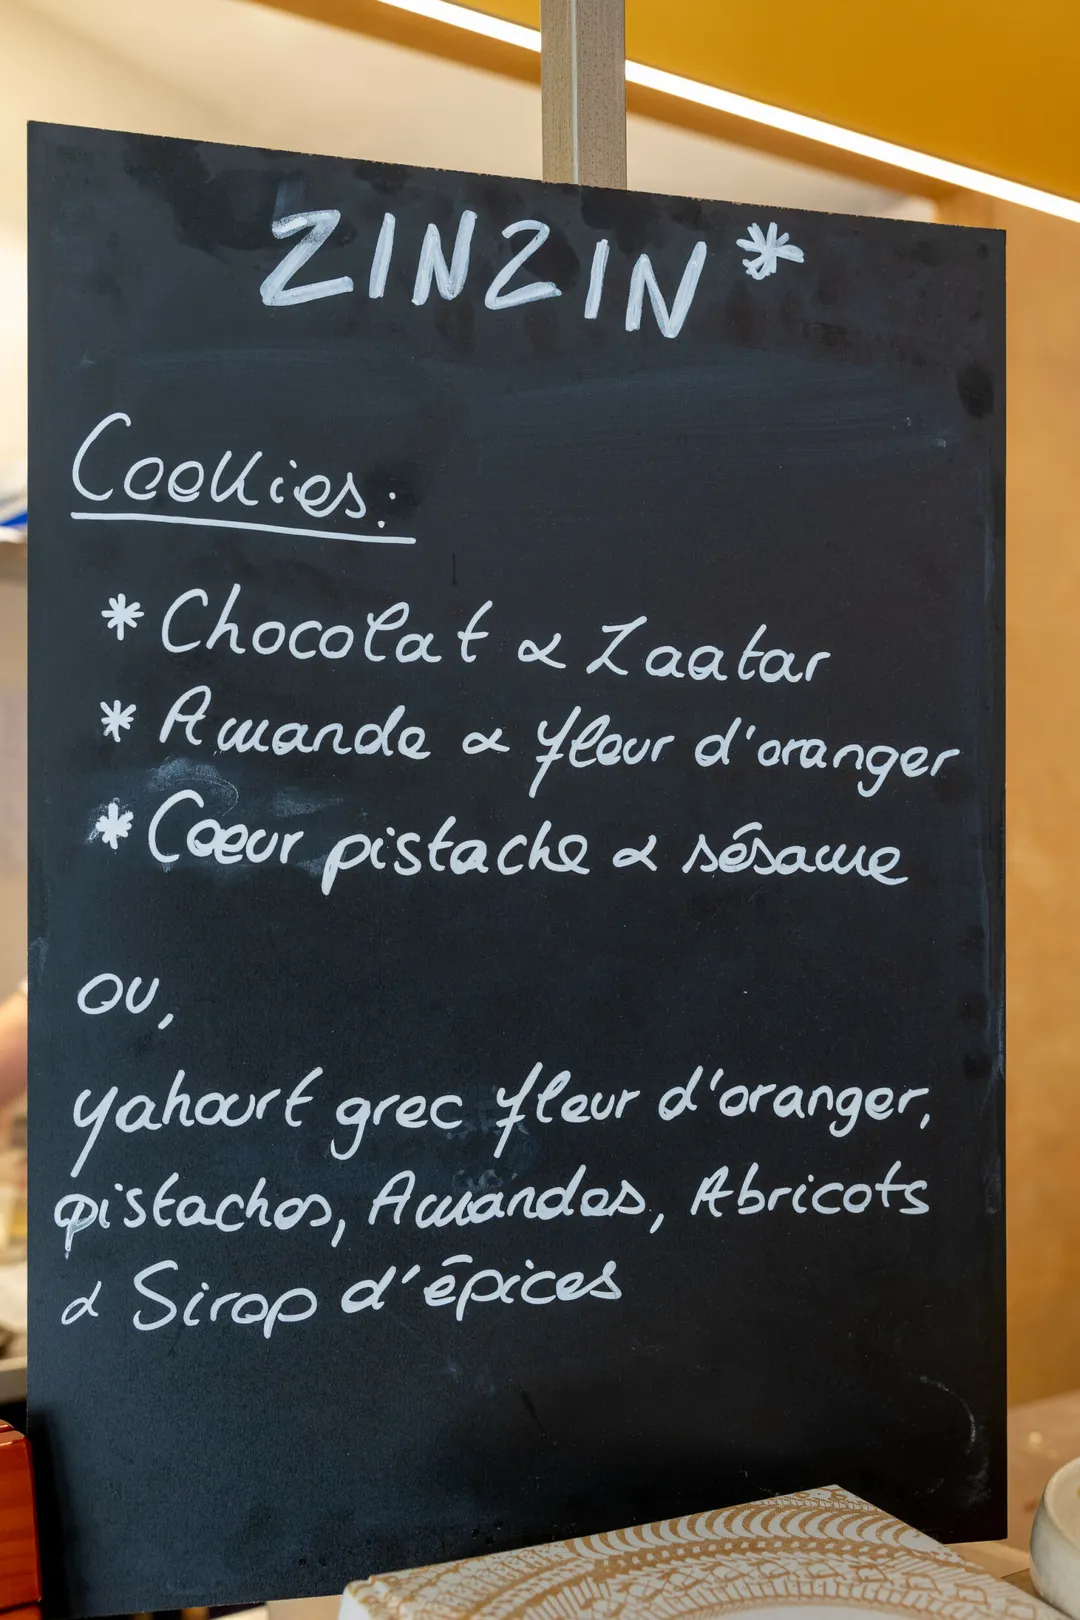 ZINZIN*
Cookies:
* Chocolat & Zaatar
* Amande & fleur d'oranger
* Cœur pistache & sésame
ou,
yahourt grec fleur d'oranger,
pistaches, Amandes, Abricots
& Sirop d'épices